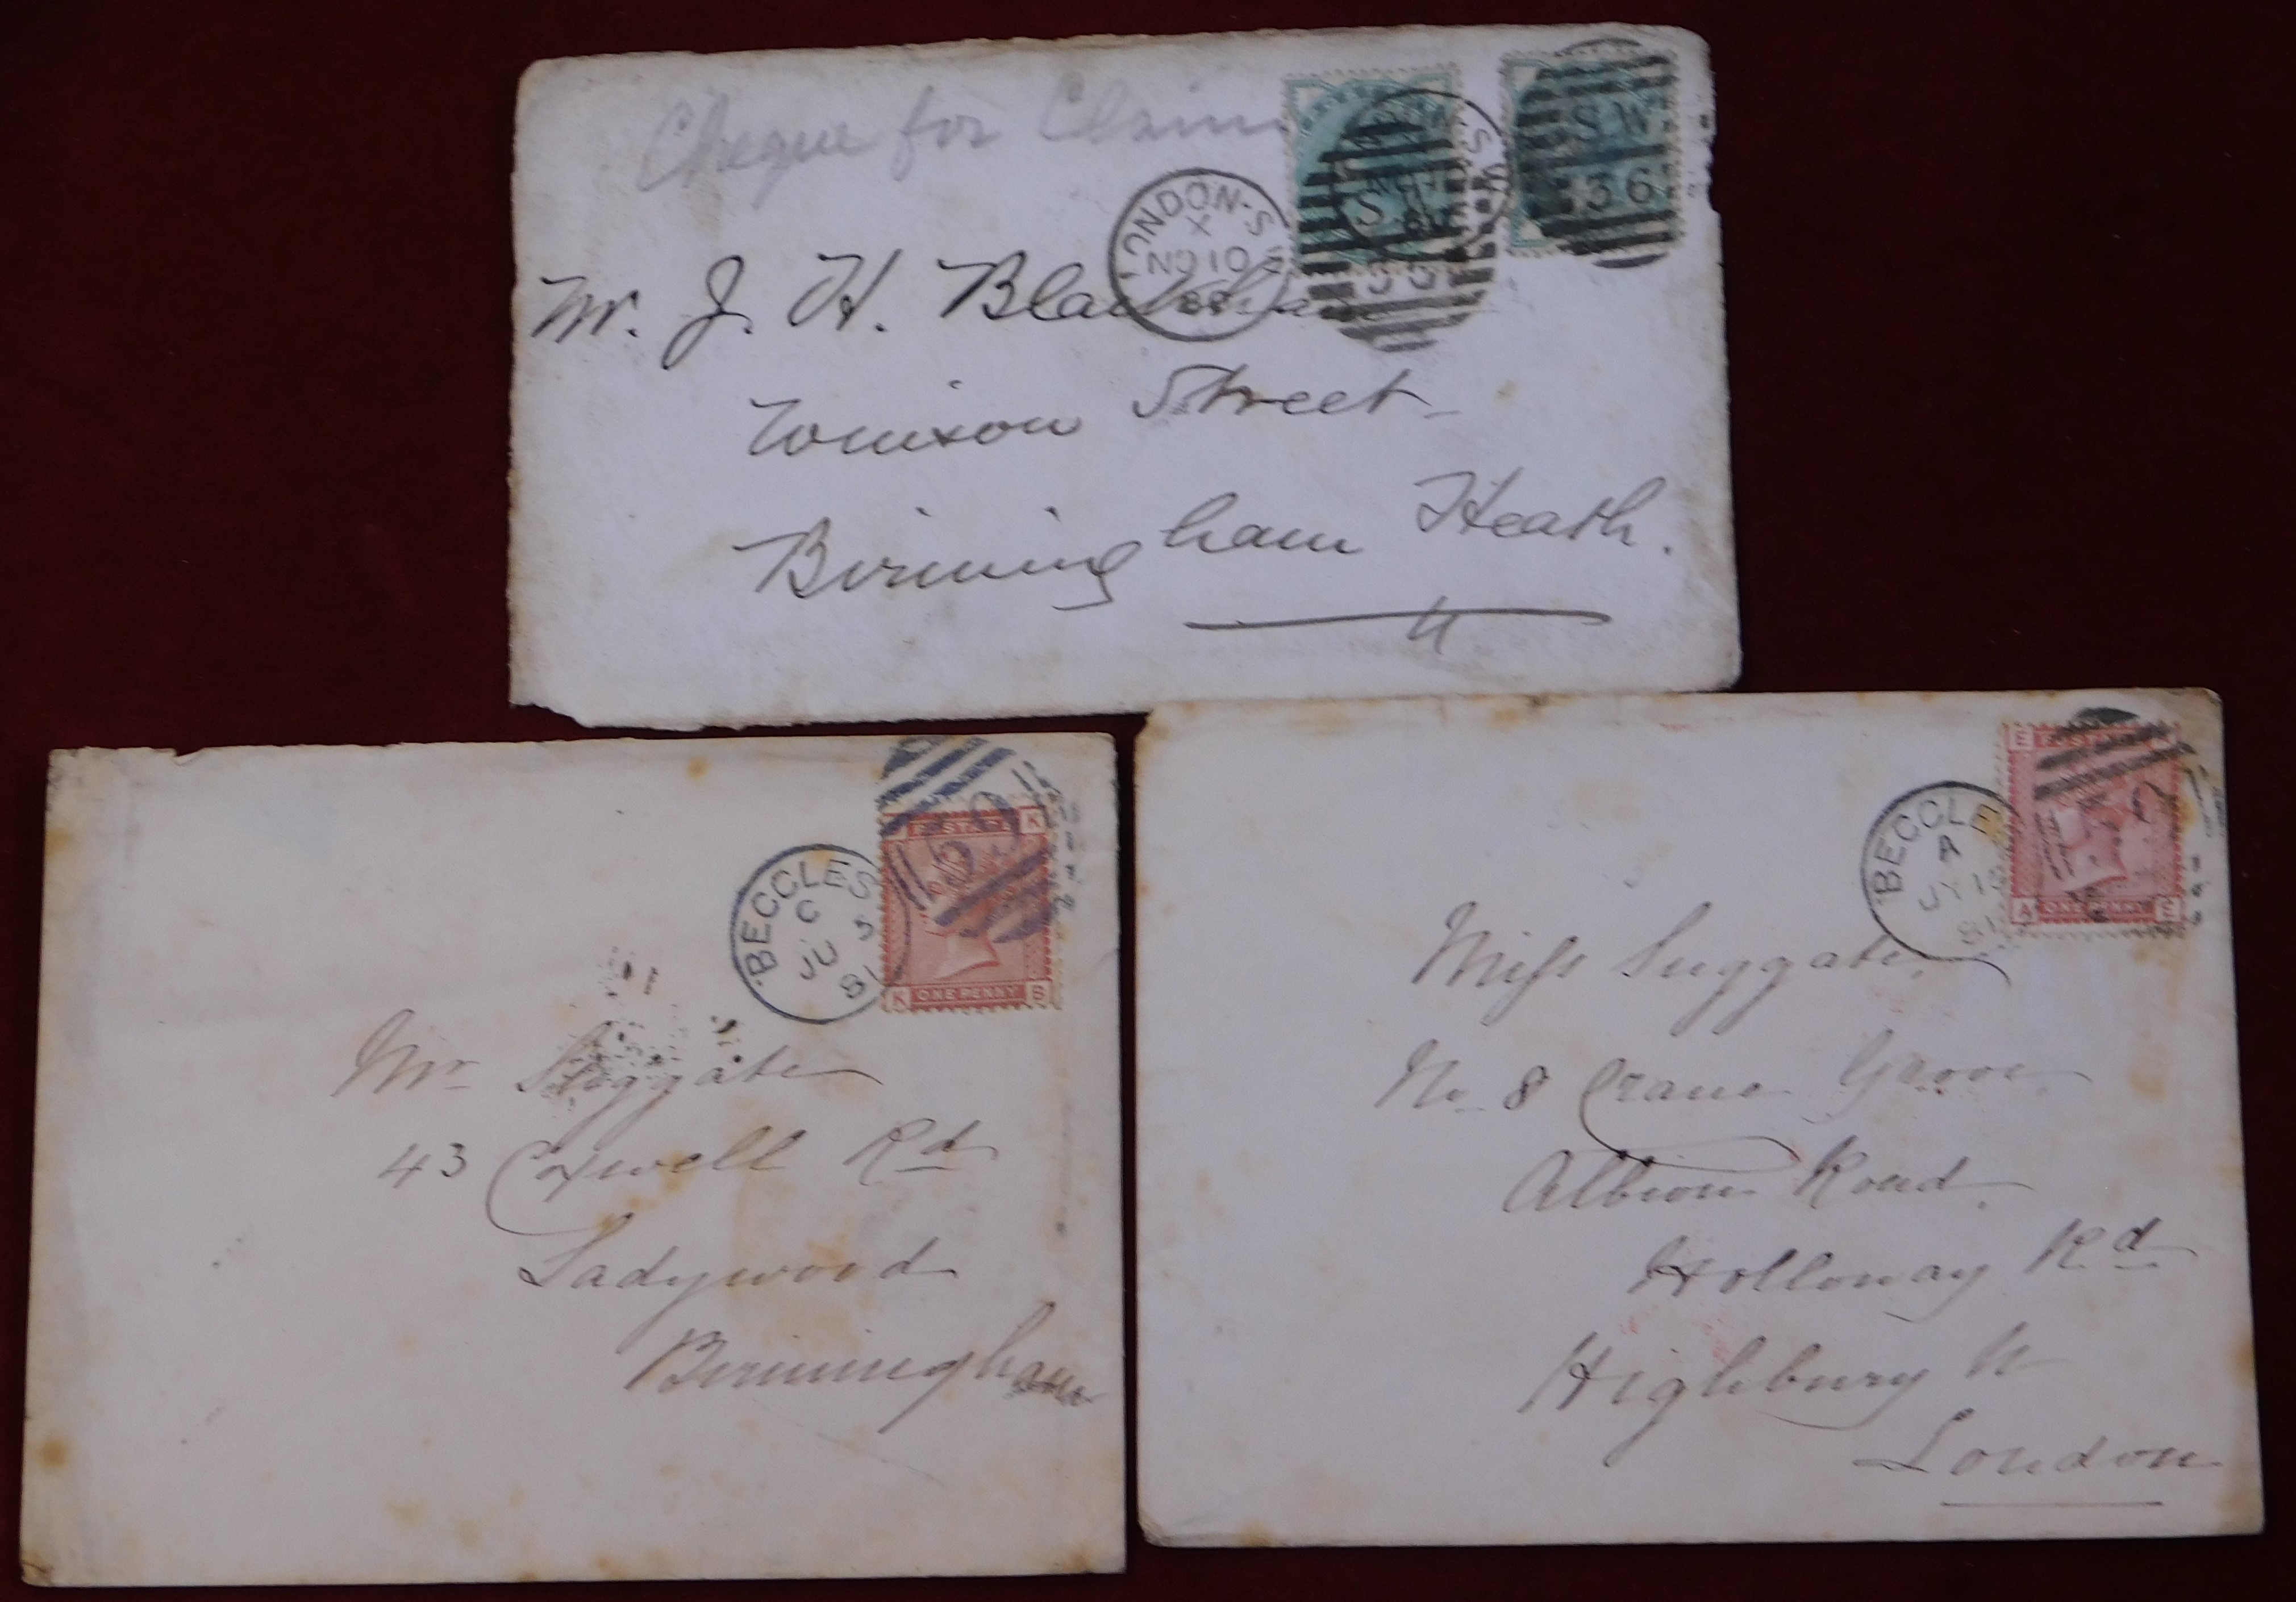 Cheque for Claim
LONDON·S.W
X
NO 10
S.W
36
S.W
Mr. J. H.
Street
Birmingham Heath.
BECCLES
C
JU 3
81
POSTAGE
K
K ONE PENNY B
Mr Suggate
43 Coxwell Rd
Ladywood
Birmingham
BECCLES
A
JY 1
81
E POSTAGE
A ONE PENNY E
Miss Suggate
No 8 Crane Grove
Albion Road.
Holloway Rd
Highbury N
London